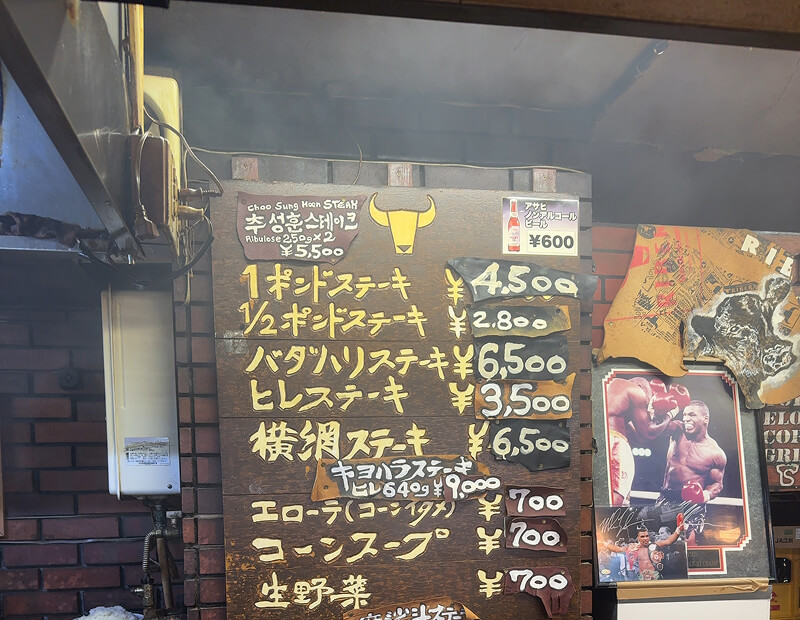 Choo Sung Hoon STEAK
추성훈스테이크
Ribulose 250g×2
¥5,500
アサヒ
ノンアルコール
ビール
¥600
1ポンドステーキ ¥4,500
1/2ポンドステーキ ¥2,800
バダハリステーキ ¥6,500
ヒレステーキ ¥3,500
横綱ステーキ ¥6,500
キヨハラステーキ
ヒレ640g ¥9,000
エローテ(コーンイタメ) ¥700
コーンスープ ¥700
生野菜 ¥700
RIB